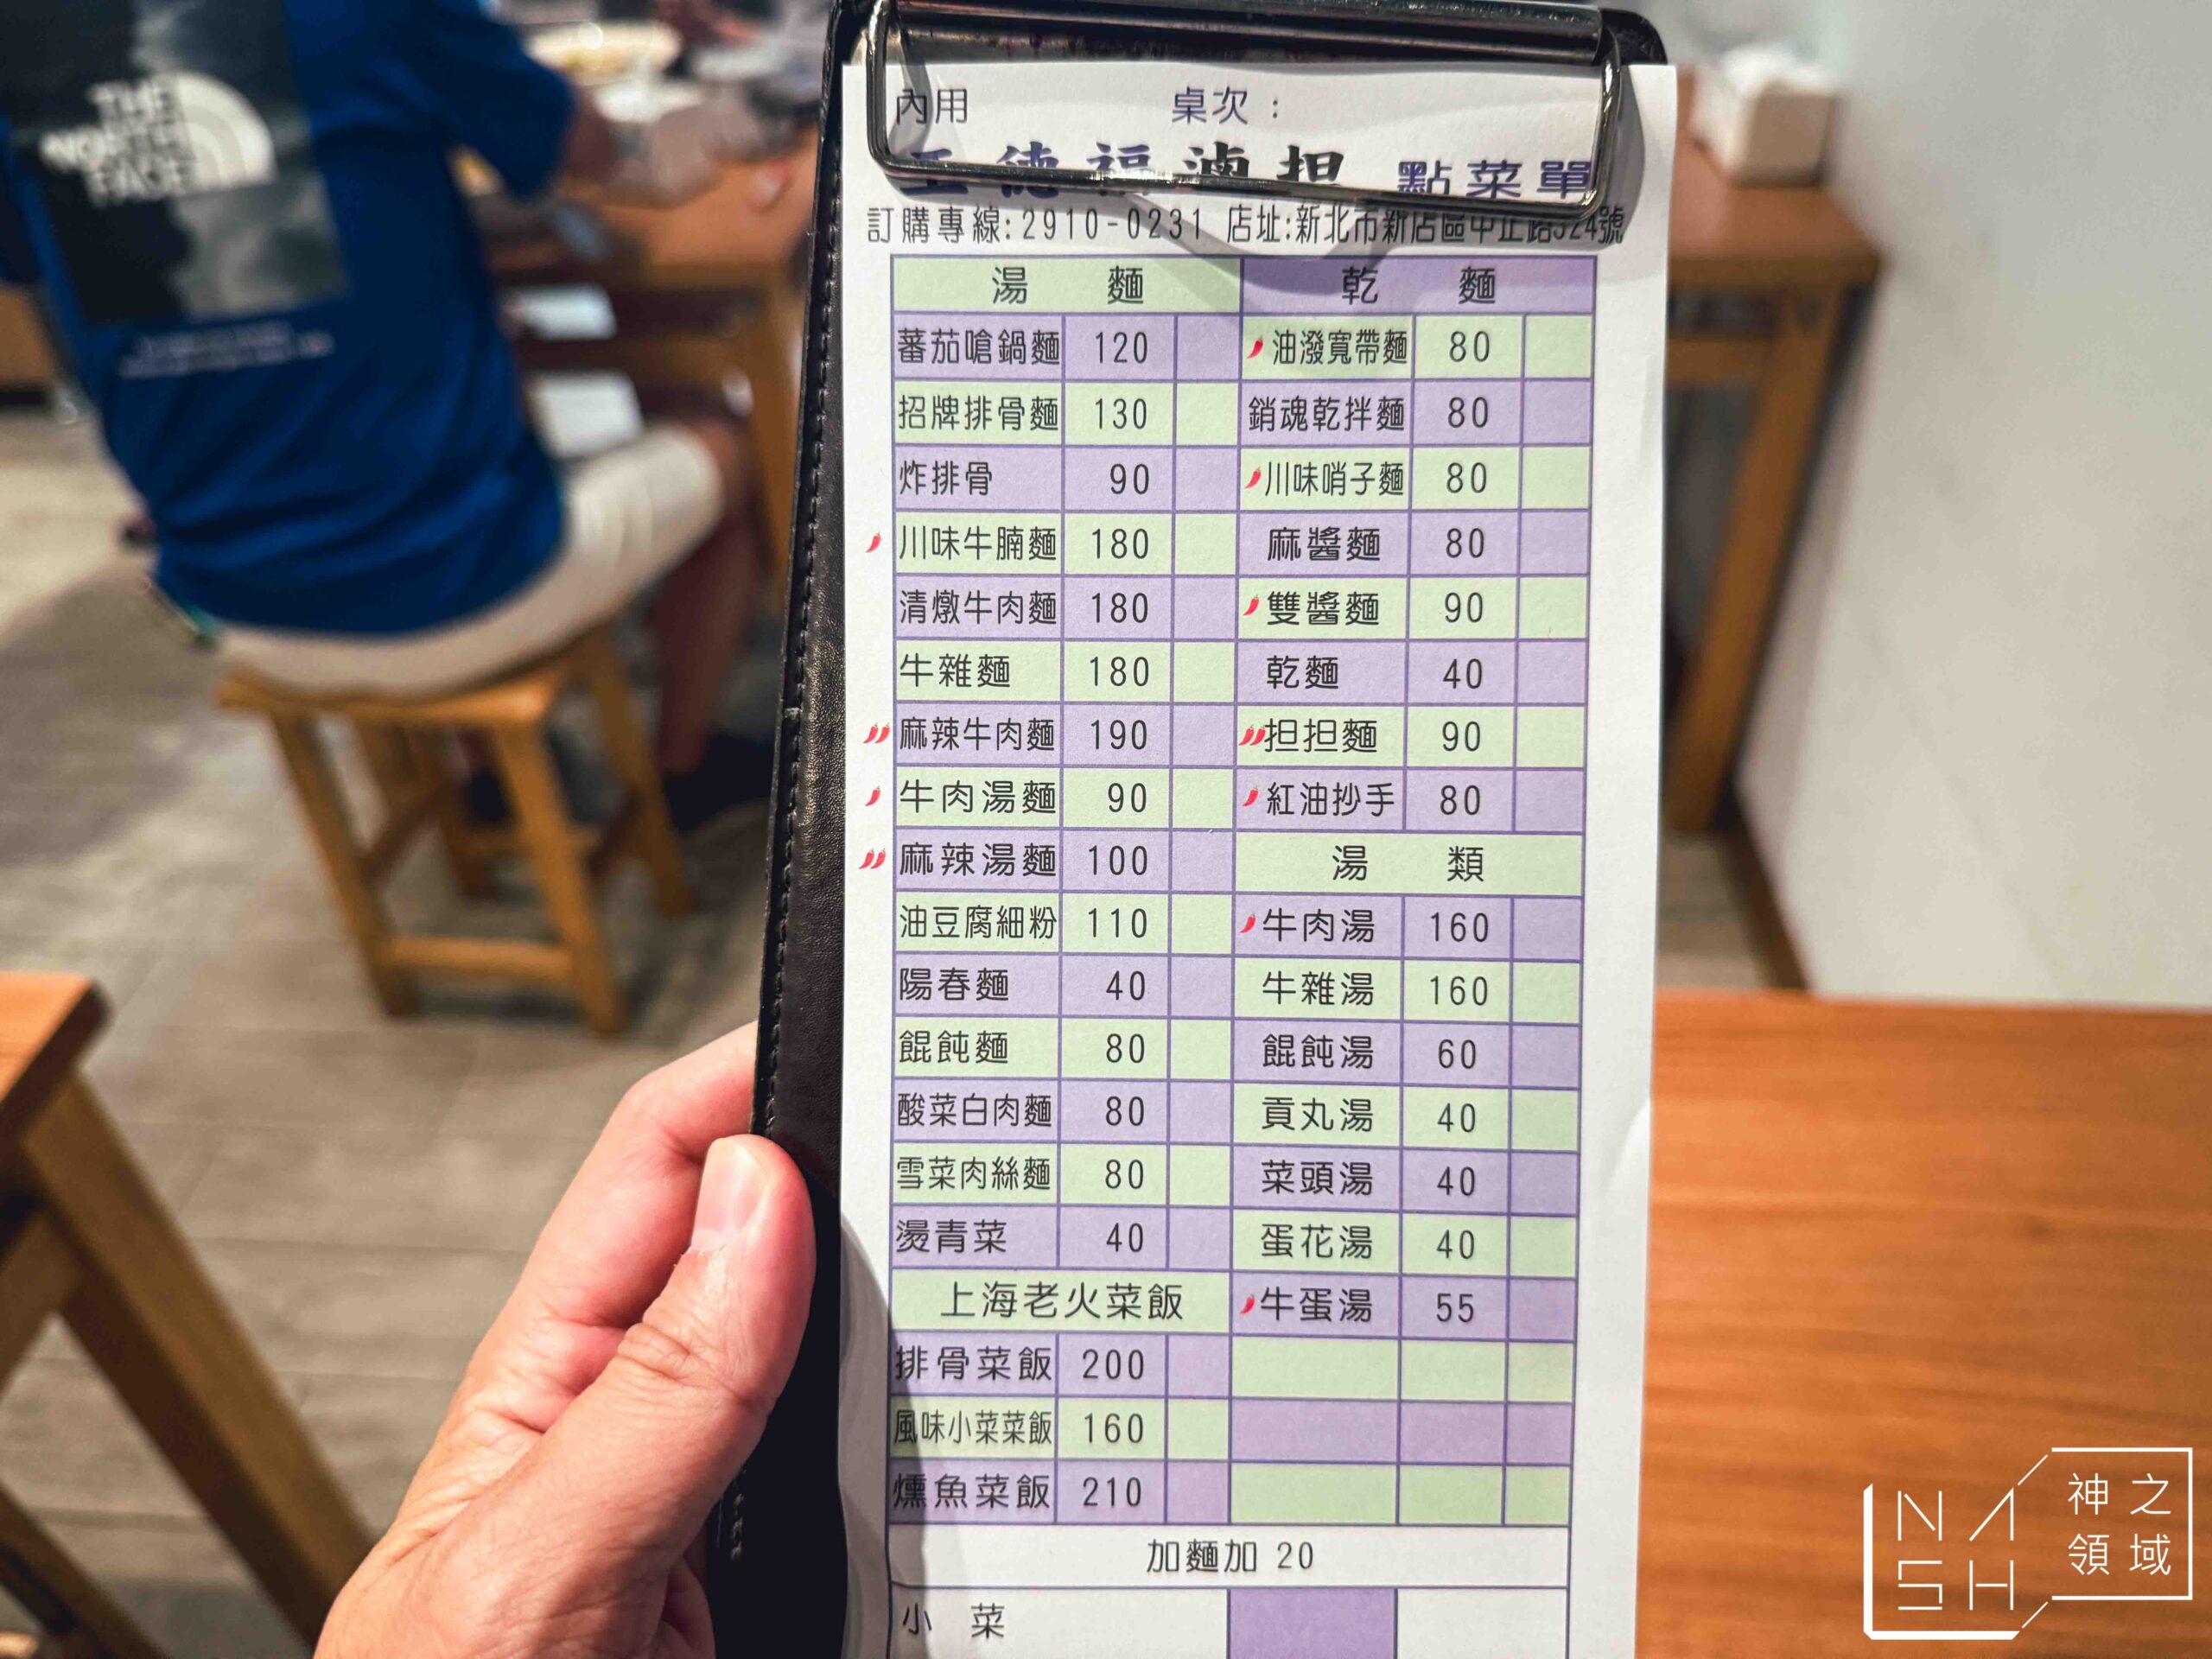 THE
NORTH
FACE
內用 桌次：
王德福滷担 點菜單
訂購專線:2910-0231 店址:新北市新店區中正路324號
湯 麵 乾 麵
蕃茄嗆鍋麵 120 油潑寬帶麵 80
招牌排骨麵 130 銷魂乾拌麵 80
炸排骨 90 川味哨子麵 80
川味牛腩麵 180 麻醬麵 80
清燉牛肉麵 180 雙醬麵 90
牛雜麵 180 乾麵 40
麻辣牛肉麵 190 担担麵 90
牛肉湯麵 90 紅油抄手 80
麻辣湯麵 100 湯 類
油豆腐細粉 110 牛肉湯 160
陽春麵 40 牛雜湯 160
餛飩麵 80 餛飩湯 60
酸菜白肉麵 80 貢丸湯 40
雪菜肉絲麵 80 菜頭湯 40
燙青菜 40 蛋花湯 40
上海老火菜飯 牛蛋湯 55
排骨菜飯 200
風味小菜菜飯 160
燻魚菜飯 210
加麵加 20
小 菜
NASH
神之
領域